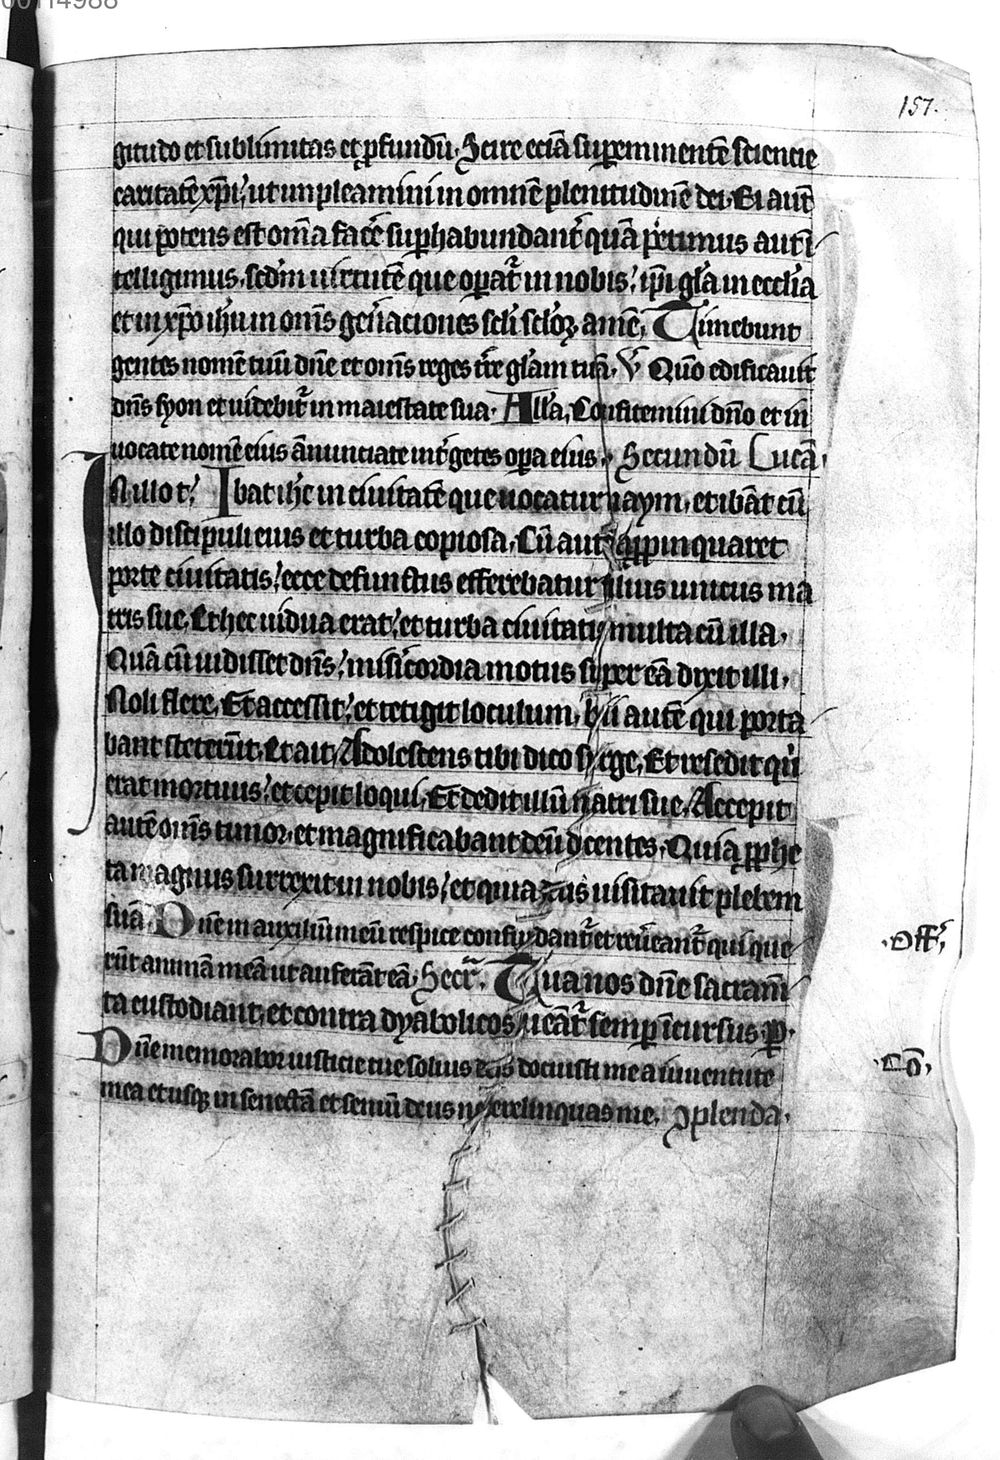 00114988
157.
gitudo et sublimitas et ꝓfundū. Scire eciā suꝑeminentē sciencie
caritatē xp̄i, ut impleamini in omnē plenitudinē dei. Ei aut̄
qui potens est om̄a facẽ suꝑhabundant̄ quā petimus aut ī
telligimus, scdm̄ uirtutē que oꝑat᷑ in nobis, ip̄i gl̄a in eccl̄ia
et in xp̄o ih̄u in om̄s gen̄aciones sc̄li sc̄loꝝ amē. Timebunt
gentes nomē tuū dn̄e et om̄s reges t̄re gl̄am tuā. V̄ Qm̄ edificauit
dn̄s syon et uidebit᷑ in maiestate sua. All̄a. Confitemini dn̄o et in
uocate nomē eius ānunciate int̄ gētes oꝑa eius. Secundū Lucā.
N illo t̄. Ibat ih̄c in ciuitatē que uocatur naym, et ibāt cū
illo discipuli eius et turba copiosa. Cū aut̄ aꝓpinquaret
porte ciuitatis, ecce defunctus efferebatur filius unicus ma
tris sue. Et hec uidua erat, et turba ciuitatis multa cū illa.
Quā cū uidisset dn̄s, mis̄icordia motus super eā dixit illi.
Noli flere. Et accessit, et tetigit loculum. hii autē qui porta
bant steterūt. Et ait, Adolescens tibi dico surge. Et resedit qui
erat mortuus, et cepit loqui. Et dedit illū matri sue. Accepit
autē om̄s timor, et magnificabant deū dicentes. Quia ꝓphe
ta magnus surrexit in nobis, et quia deus uisitauit plebem
suā. Dn̄e in auxiliū meū respice confundant᷑ et reu̅eant᷑ qui que
rūt animā meā ut auferāt eā. Secr̄. Tua nos dn̄e sacram̄
ta custodiant, et contra dyabolicos tueāt᷑ semꝑ īcursus. ꝑ.
Dn̄e memorabor iusticie tue solius deus docuisti me a iuuentute
mea et usqꝫ in senectā et seniū deus ne derelinquas me. 9plenda.
.Off̄.
.Co̅.